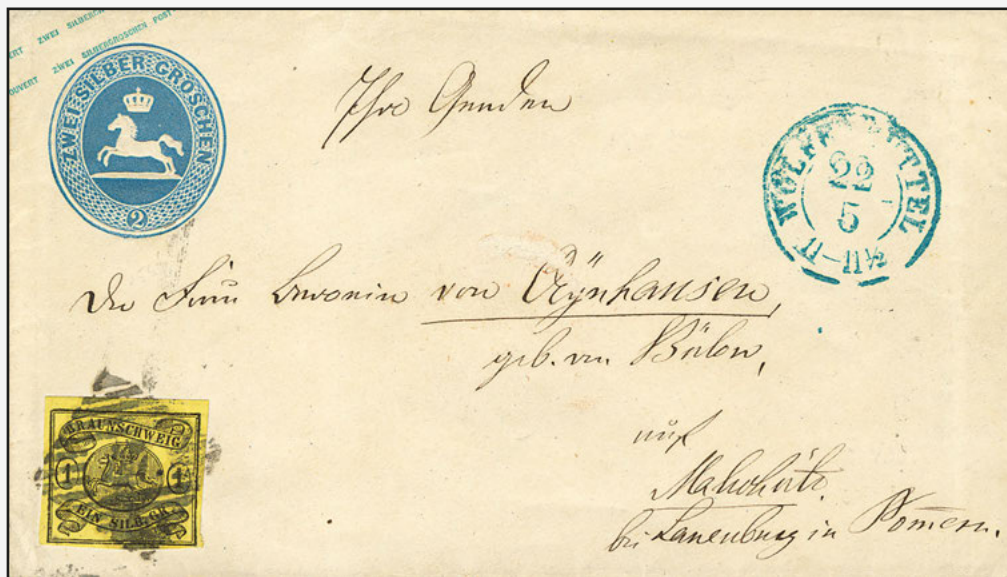 ERT ZWEI SILBERGR
OUVERT ZWEI SILBERGROSCHEN POST
ZWEI SILBER GROSCHEN
2
Ihro Gnaden
WOLFENBÜTTEL
22
5
11-11½
Der Frau Baronin von Oÿnhausen,
geb. von Bülow,
auf
bei Lauenburg in Pommern.
BRAUNSCHWEIG
1 1
EIN SILB.GR.